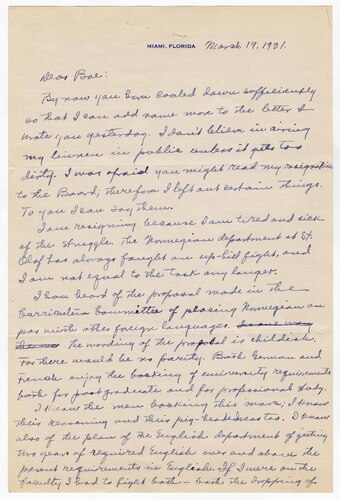 MIAMI, FLORIDA March 19, 1931.
Dear Boe:
By now you have cooled down sufficiently
so that I can add some more to the letter I
wrote you yesterday. I don't believe in airing
my linen in public unless it gets too
dirty. I was afraid you might read my resignation
to the Board; therefore I left out certain things.
To you I can say them.
I am resigning because I am tired and sick
of the struggle. The Norwegian department at St.
Olaf has always fought an up-hill fight, and
I am not equal to the task any longer.
I have heard of the proposal made in the
Curriculum Committee of placing Norwegian on
par with other foreign languages. In one way
the wording of the proposal is childish.
For there would be no parity. Both German and
French enjoy the backing of university requirements
both for post graduate and for professional study.
I know the men backing this move, I know
their reasoning and their pig-headedness too. I know
also of the plan of the English department of getting
two years of required English over and above the
present requirements in English. If I were on the
faculty I had to fight both – both the dropping of